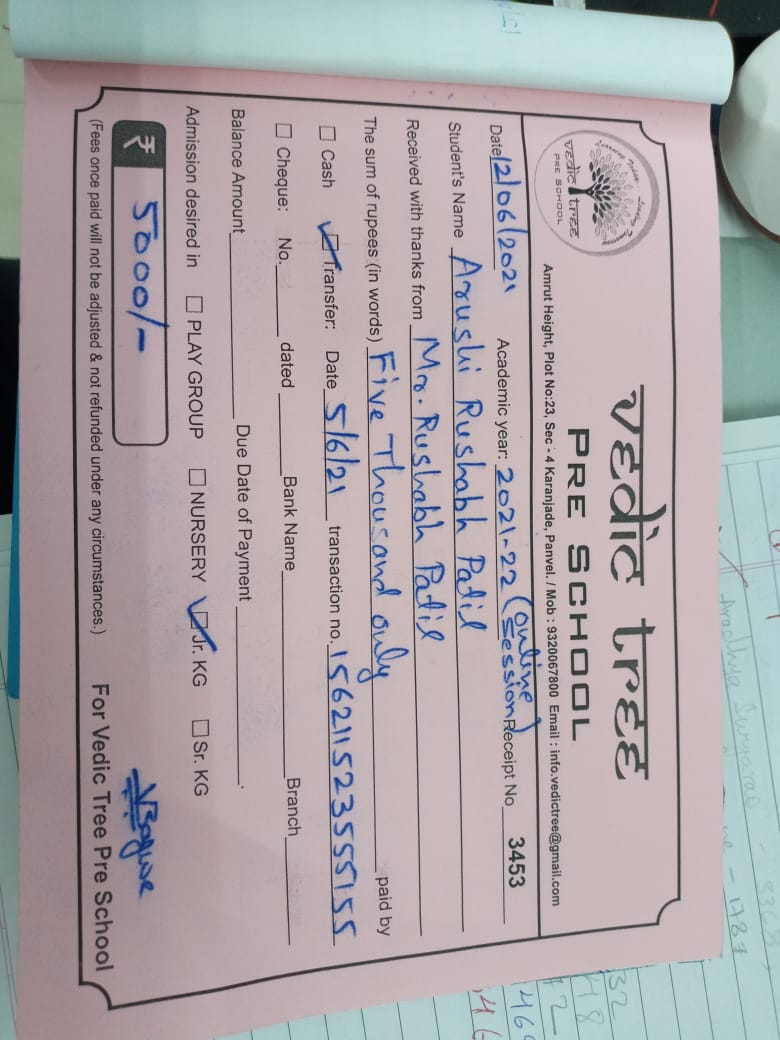 vedic tree
PRE SCHOOL
vedic tree
PRE SCHOOL
Amrut Height, Plot No:23, Sec - 4 Karanjade, Panvel. / Mob : 9320067800 Email : info.vedictree@gmail.com
Date 12/06/2021 Academic year: 2021-22 (online session) Receipt No 3453
Student's Name Arushi Rushabh Patil
Received with thanks from Mr. Rushabh Patil
The sum of rupees (in words) Five Thousand only paid by
Cash Transfer: Date 5/6/21 transaction no. 156211523555155
Cheque: No. dated Bank Name Branch
Balance Amount Due Date of Payment .
Admission desired in PLAY GROUP NURSERY Jr. KG Sr. KG
₹ 5000/-
(Fees once paid will not be adjusted & not refunded under any circumstances.) For Vedic Tree Pre School
- 1787